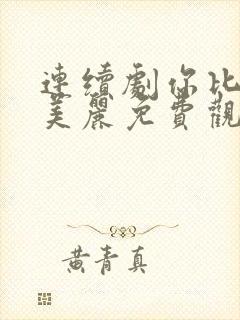 連續劇你比
美麗免費觀
黃青真